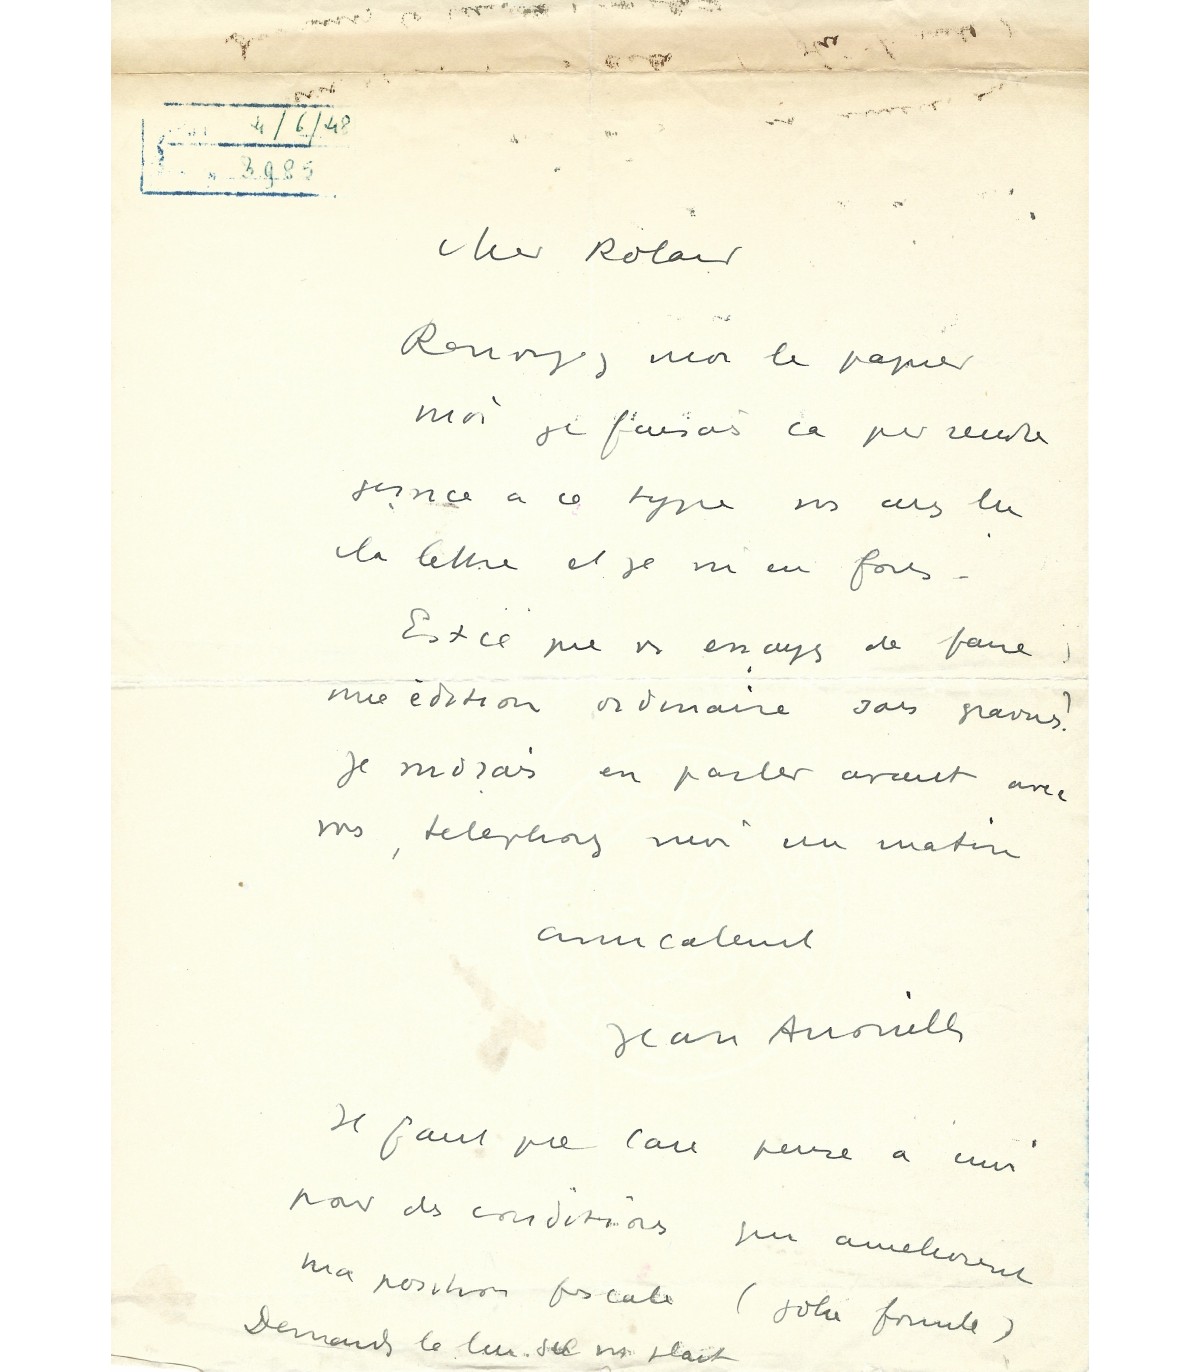 4/6/48
3985
Cher Roland
Renvoyez moi le papier
moi je faisais ca pr rendre
service a ce type vs avez lu
la lettre et je m'en fous -
Est ce que vs essayez de faire
une édition ordinaire sans gravures?
Je voudrais en parler avant avec
vous, telephonez moi un matin
amicalement
Jean Anouilh
Il faut que Care pense a moi
pour des conditions qui ameliorent
ma position fiscale (jolie formule)
Demandez le lui s'il vs plait